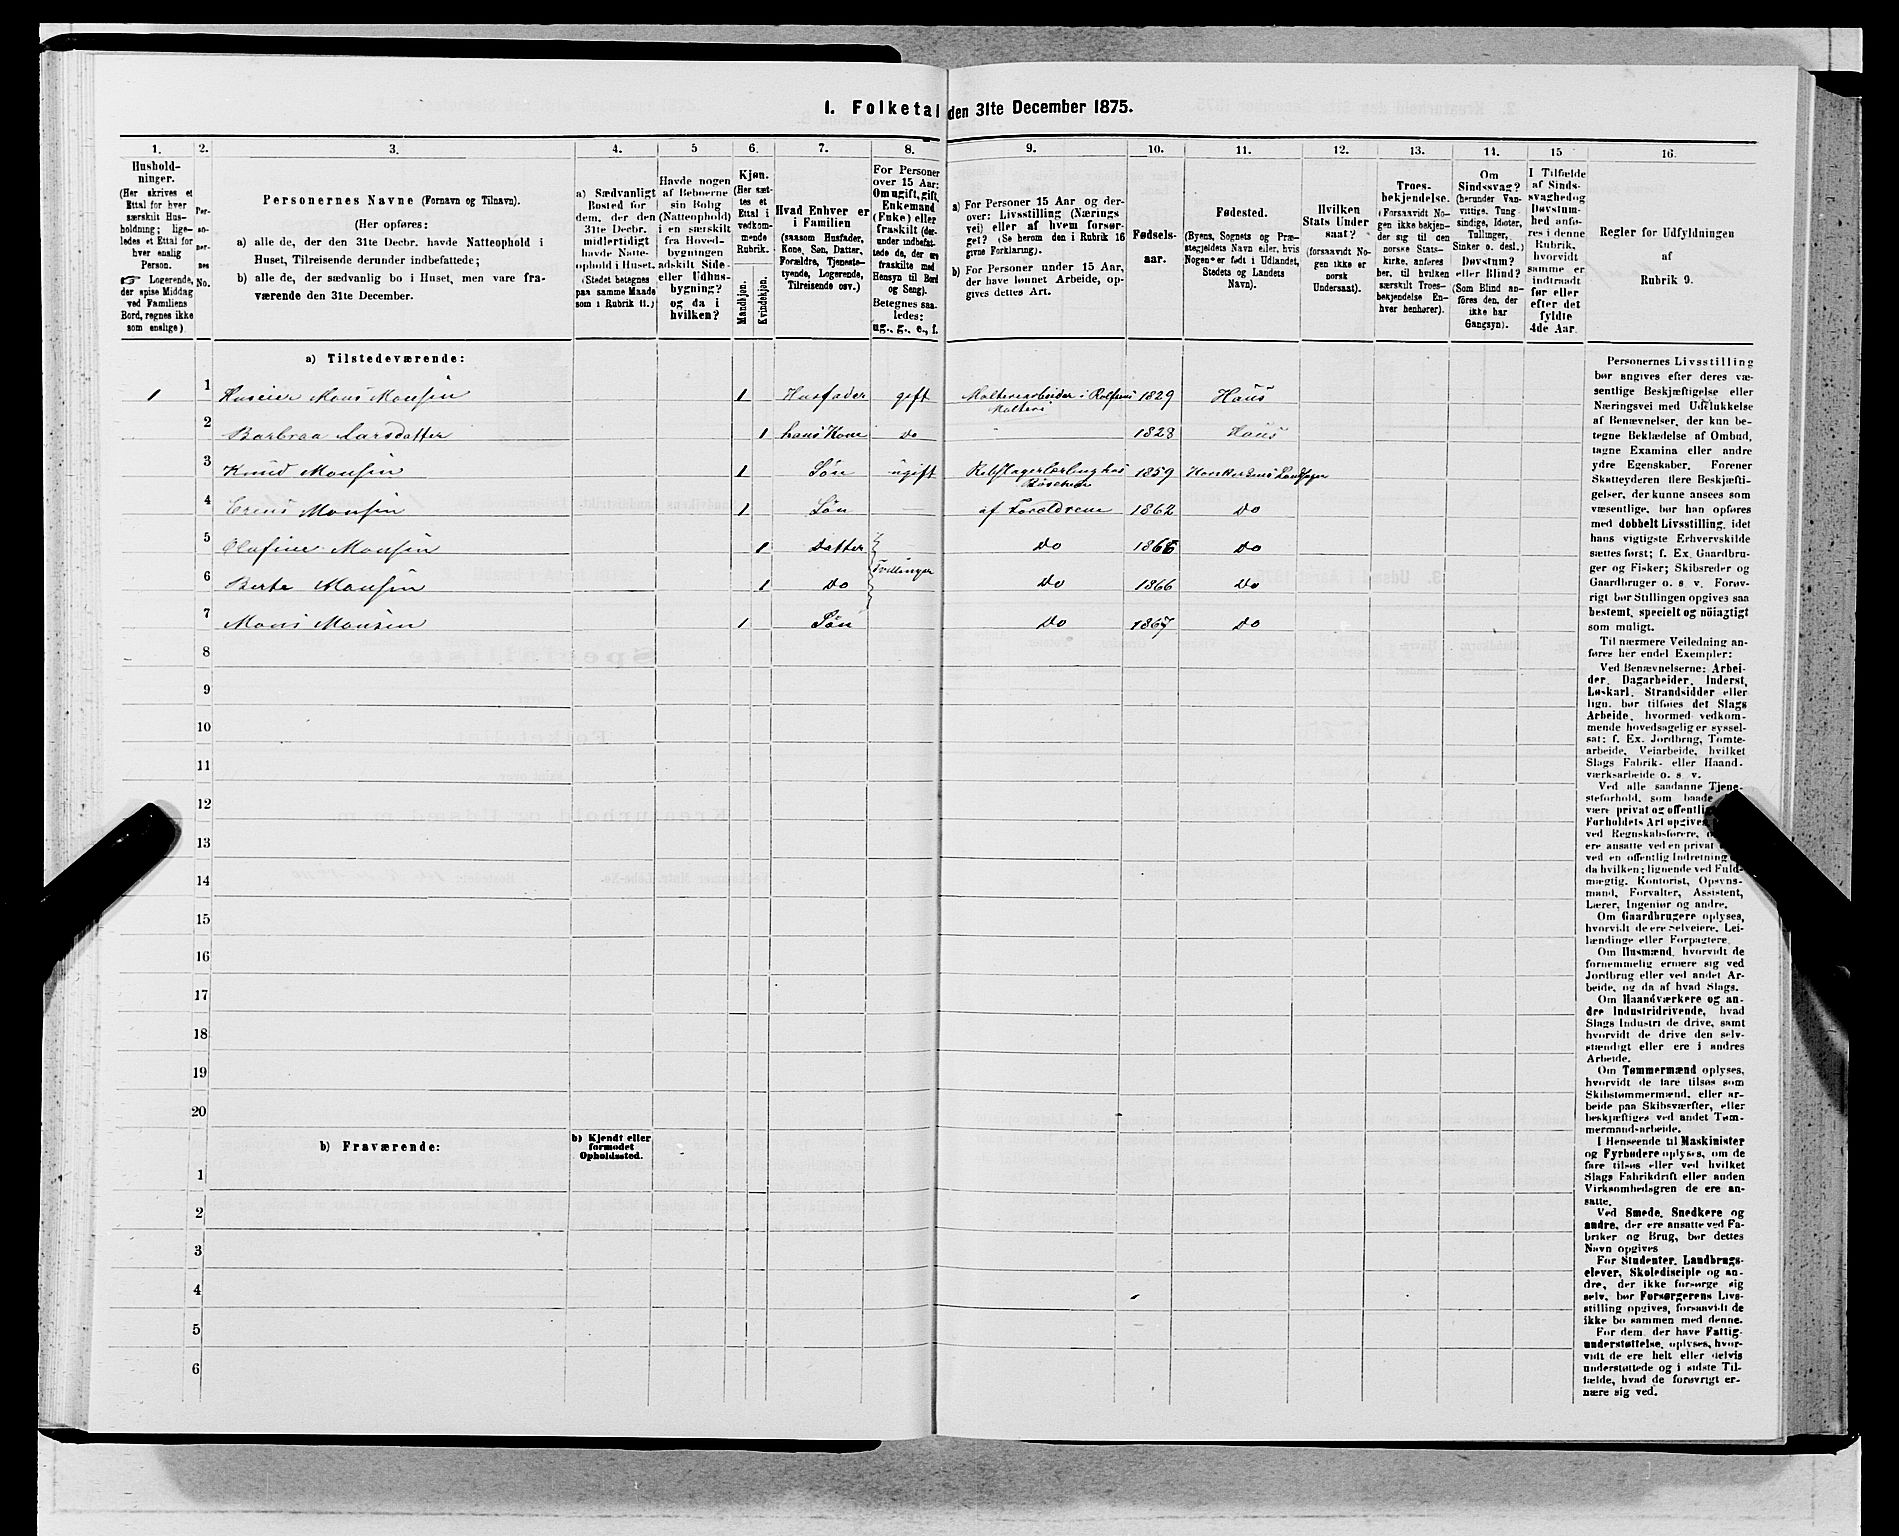 1. Folketal den 31te December 1875.
1. 2. 3. 4. 5 6. 7. 8. 9. 10. 11. 12. 13. 14. 15 16.
Hushold-
ninger.
(Her skrives et
Ettal for hver
særskilt Hus-
holdning; lige-
ledes et Ettal for
hver enslig
Person.
☞ Logerende,
der spise Middag
ved Familiens
Bord, regnes ikke
som enslige)
Per-
so-
ner-
nes
No.
Personernes Navne (Fornavn og Tilnavn).
(Her opføres:
a) alle de, der den 31te Decbr. havde Natteophold i
Huset, Tilreisende derunder indbefattede;
b) alle de, der sædvanlig bo i Huset, men vare fra-
værende den 31te December.
a) Sædvanligt
Bosted for
dem, der den
31te Decbr.
midlertidigt
havde Natte-
ophold i Huset.
(Stedet betegnes
paa samme Maade
som i Rubrik 11.)
Havde nogen
af Beboerne
sin Bolig
(Natteophold)
i en særskilt
fra Hoved-
bygningen
adskilt Side-
eller Udhus-
bygning?
og da i
hvilken?
Kjøn.
(Her sæt-
tes et
Ettal i
vedkom-
mende
Rubrik.
Mandkjøn.
Kvindekjøn.
Hvad Enhver er
i Familien
(saasom Husfader,
Kone, Søn, Datter,
Forældre, Tjeneste-
tyende, Logerende,
Tilreisende osv.)
For Personer
over 15 Aar:
Om ugift, gift,
Enkemand
(Enke) eller
fraskilt (der-
under indbefat-
tede de, der ere
fraskilte med
Hensyn til Bord
og Seng).
Betegnes saa-
ledes:
ug., g., e., f.
a) For Personer 15 Aar og der-
over: Livsstilling (Nærings
vei) eller af hvem forsør-
get? (Se herom den i Rubrik 16
givne Forklaring).
b) For Personer under 15 Aar,
der have lønnet Arbeide, op-
gives dettes Art.
Fødsels-
aar.
Fødested.
(Byens, Sognets og Præ-
stegjeldets Navn eller, hvis
Nogen er født i Udlandet,
Stedets og Landets
Navn).
Hvilken
Stats Under
saat?
(forsaavidt No-
gen ikke er
norsk
Undersaat).
Troes-
bekjendelse.
(Forsaavidt No-
gen ikke bekjen-
der sig til den
norske Stats-
kirke, anføres
her, til hvilken
særskilt Troes-
bekjendelse En-
hver henhører).
Om
Sindssvag?
(herunder Van-
vittige, Tung-
sindige, Idioter,
Tullinger,
Sinker o. desl.)
Døvstum?
eller Blind?
(Som Blind an-
føres den, der
ikke har
Gangsyn).
I Tilfælde
af Sinds-
svaghed og
Døvstum-
hed anfø-
res i denne
Rubrik,
hvorvidt
samme er
indtraadt
før eller
efter det
fyldte
4de Aar.
Regler for Udfyldningen
af
Rubrik 9.
a) Tilstedeværende:
1 1 Huseier Mons Monsen 1 Husfader gift Malteriarbeider i Rolfsens 1829 Haus
Malteri
2 Barbraa Larsdatter 1 hans Kone Do 1828 Haus
3 Knud Monsen 1 Søn ugift Rebslagerlærling hos 1859
4 Monsen 1 Søn — af Forældrene 1862 Do
5 Olafine Monsen 1 Datter Do Do
Tvillinger
6 Berte Monsen 1 Do Do 1866 Do
7 Mons Monsen 1 Søn Do 1867 Do
8
9
10
11
12
13
14
15
16
17
18
19
20
b) Fraværende:
b) Kjendt eller
formodet
Opholdssted.
1
2
3
4
5
6
Personernes Livsstilling
bør angives efter deres væ-
sentlige Beskjæftigelse eller
Næringsvei med Udelukkelse
af Benævnelser, der kun be-
tegne Beklædelse af Ombud,
tagne Examina eller andre
ydre Egenskaber. Forener
Skatteyderen flere Beskjæfti-
gelser, der kunne ansees som
væsentlige, bør han opføres
med dobbelt Livsstilling, idet
hans vigtigste Erhvervskilde
sættes først; f. Ex. Gaardbru-
ger og Fisker; Skibsreder og
Gaardbruger o. s. v. Forøv-
rigt bør Stillingen opgives saa
bestemt, specielt og nöiagtigt
som muligt.
Til nærmere Veiledning an-
føres her endel Exempler:
Ved Benævnelserne: Arbei-
der, Dagarbeider, Inderst,
Løskarl, Strandsidder eller
lign. bør tilføies det Slags
Arbeide, hvormed vedkom-
mende hovedsagelig er syssel-
sat: f. Ex. Jordbrug, Tomte-
arbeide, Veiarbeide, hvilket
Slags Fabrik- eller Haand-
værksarbeide o. s. v.
Ved alle saadanne Tjene-
steforhold, som baade
være privat og offentlig
Forholdets Art opgives
ved Regnskabsførere,
ere ansatte ved en privat
ved en offentlig Indretning
da hvilken; lignende ved Fuld-
mægtig, Kontorist, Opsyns-
mand, Forvalter, Assistent,
Lærer, Ingeniør og andre.
Om Gaardbrugere oplyses,
hvorvidt de ere Selveiere, Lei-
lændinge eller Forpagtere.
Om Husmænd, hvorvidt de
fornemmelig ernære sig ved
Jordbrug eller ved andet Ar-
beide, og da af hvad Slags.
Om Haandværkere og an-
dre Industridrivende, hvad
Slags Industri de drive, samt
hvorvidt de drive den selv-
stændigt eller ere i andres
Arbeide.
Om Tømmermænd oplyses,
hvorvidt de fare tilsøs som
Skibstømmermænd, eller ar-
beide paa Skibsværfter, eller
beskjæftiges ved andet Tøm-
mermandsarbeide.
I Henseende til Maskinister
og Fyrbødere oplyses, om de
fare tilsøs eller ved hvilket
Slags Fabrikdrift eller anden
Virksomhedsgren de ere an-
satte.
Ved Smede, Snedkere og
andre, der ere ansatte ved Fa-
briker og Brug, bør dettes
Navn opgives
For Studenter, Landbrugs-
elever, Skoledisciple og an-
dre, der ikke forsørge sig
selv, bør Forsørgerens Livs-
stilling opgives, forsaavidt de
ikke bo sammen med denne.
For dem, der have Fattig-
understøttelse, oplyses, hvor-
vidt de ere helt eller delvis
understøttede og i sidste Til-
fælde, hvad de forøvrigt er-
nære sig ved.